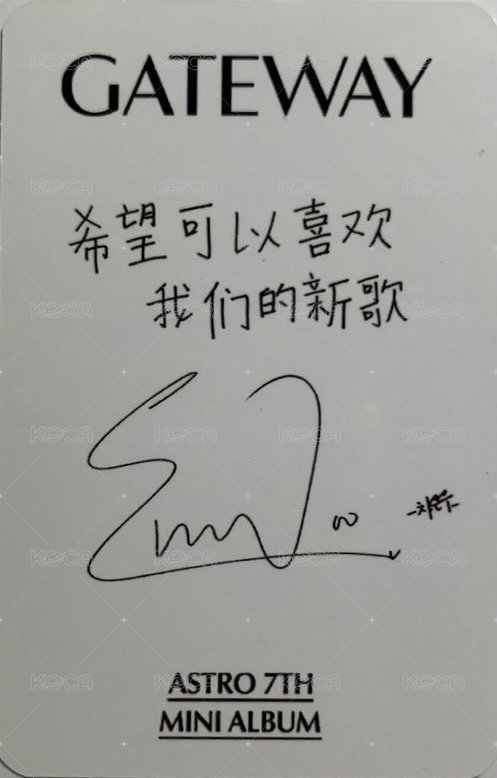 GATEWAY
希望可以喜欢
我们的新歌
ASTRO 7TH
MINI ALBUM